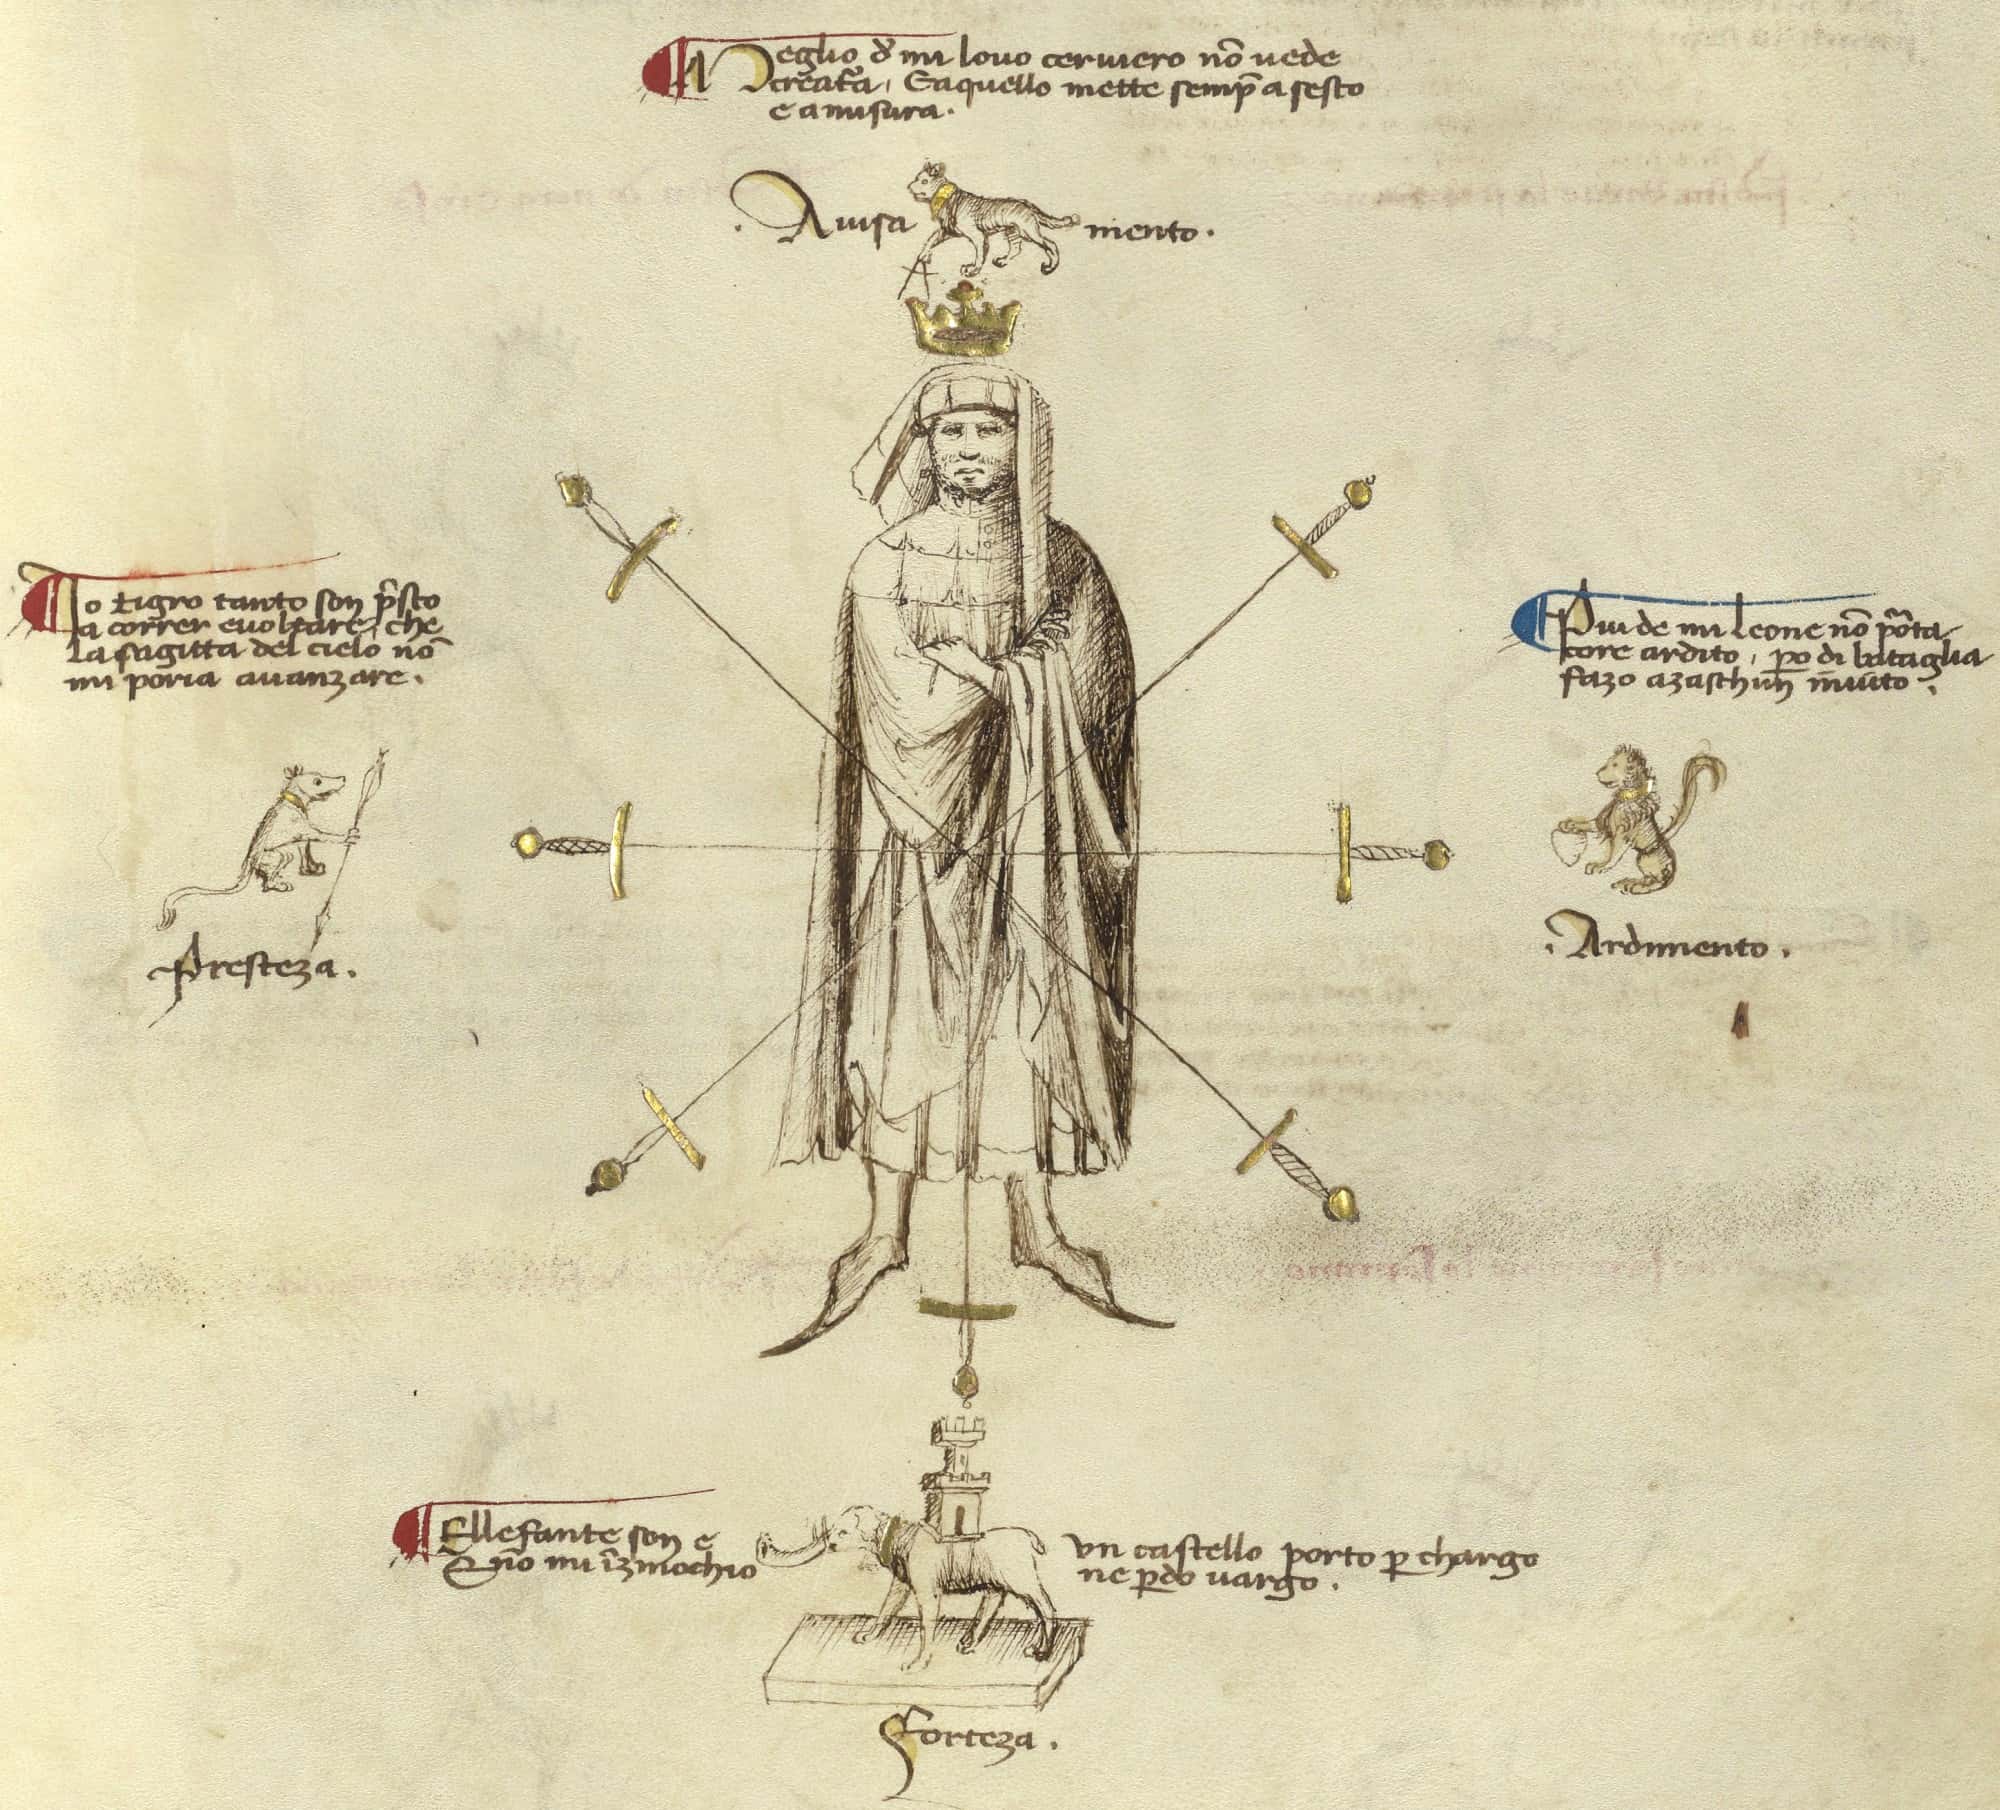 Meglio de mi lovo cerviero nō vede
creatura, Eaquello mette semp̄ a sesto
e a misura.
Avisa mento.
Io tigro tanto son p̄sto
a correr e voltare, che
la sagitta del cielo nō
mi poria avanzare.
Più de mi Leone nō porta
core ardito, po di bataglia
fazo azaschun invito.
Presteza.
Ardimento.
Ellefante son e
nō mi īzinochio
un castello porto p chargo
ne p̄do vargo.
Forteza.